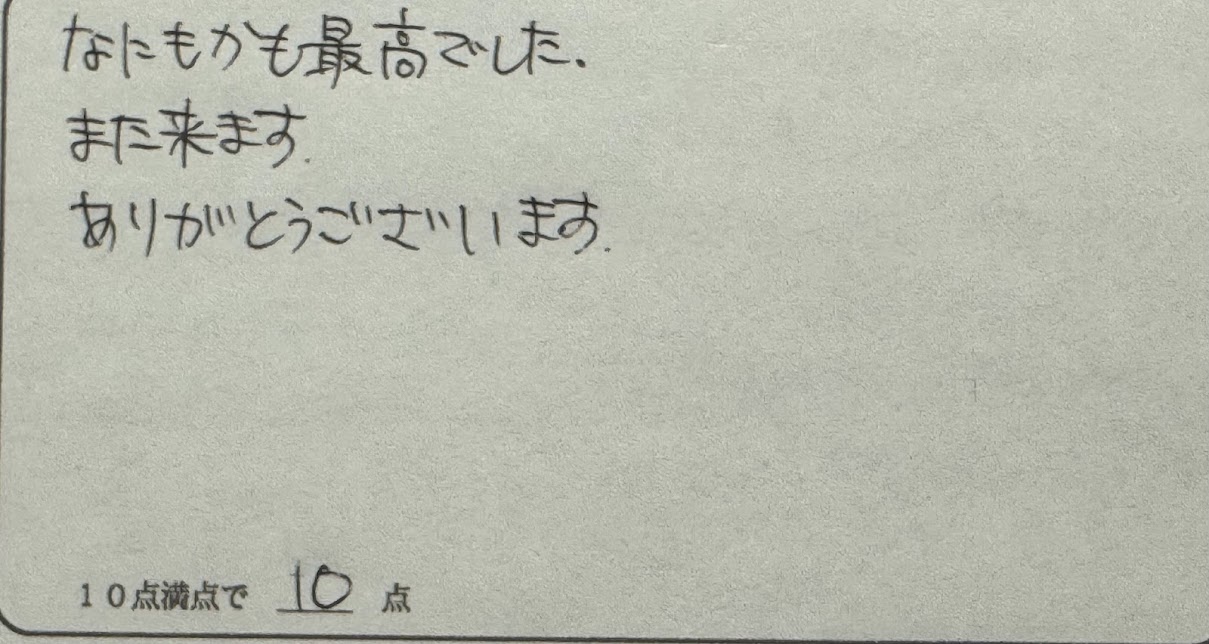 なにもかも最高でした.
また来ます.
ありがとうございます.
10点満点で 10 点